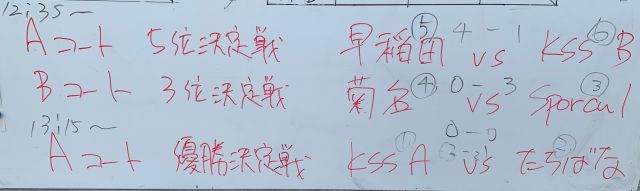 12:35~
Aコート 5位決定戦 早稲田 ⑤ 4-1 vs KSS B ⑥
Bコート 3位決定戦 菊名 ④ 0-3 vs Sporcul ③
13:15~
Aコート 優勝決定戦 KSS A ① 0-0 (3-3) vs たちばな ②